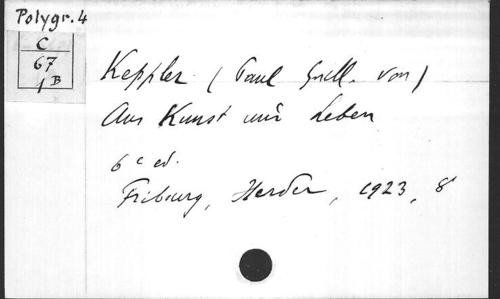 Polygr. 4
C
67
1B
Keppler (Paul Guill. von)
Aus Kunst und Leben
6e ed.
Fribourg, Herder, 1923, 8°